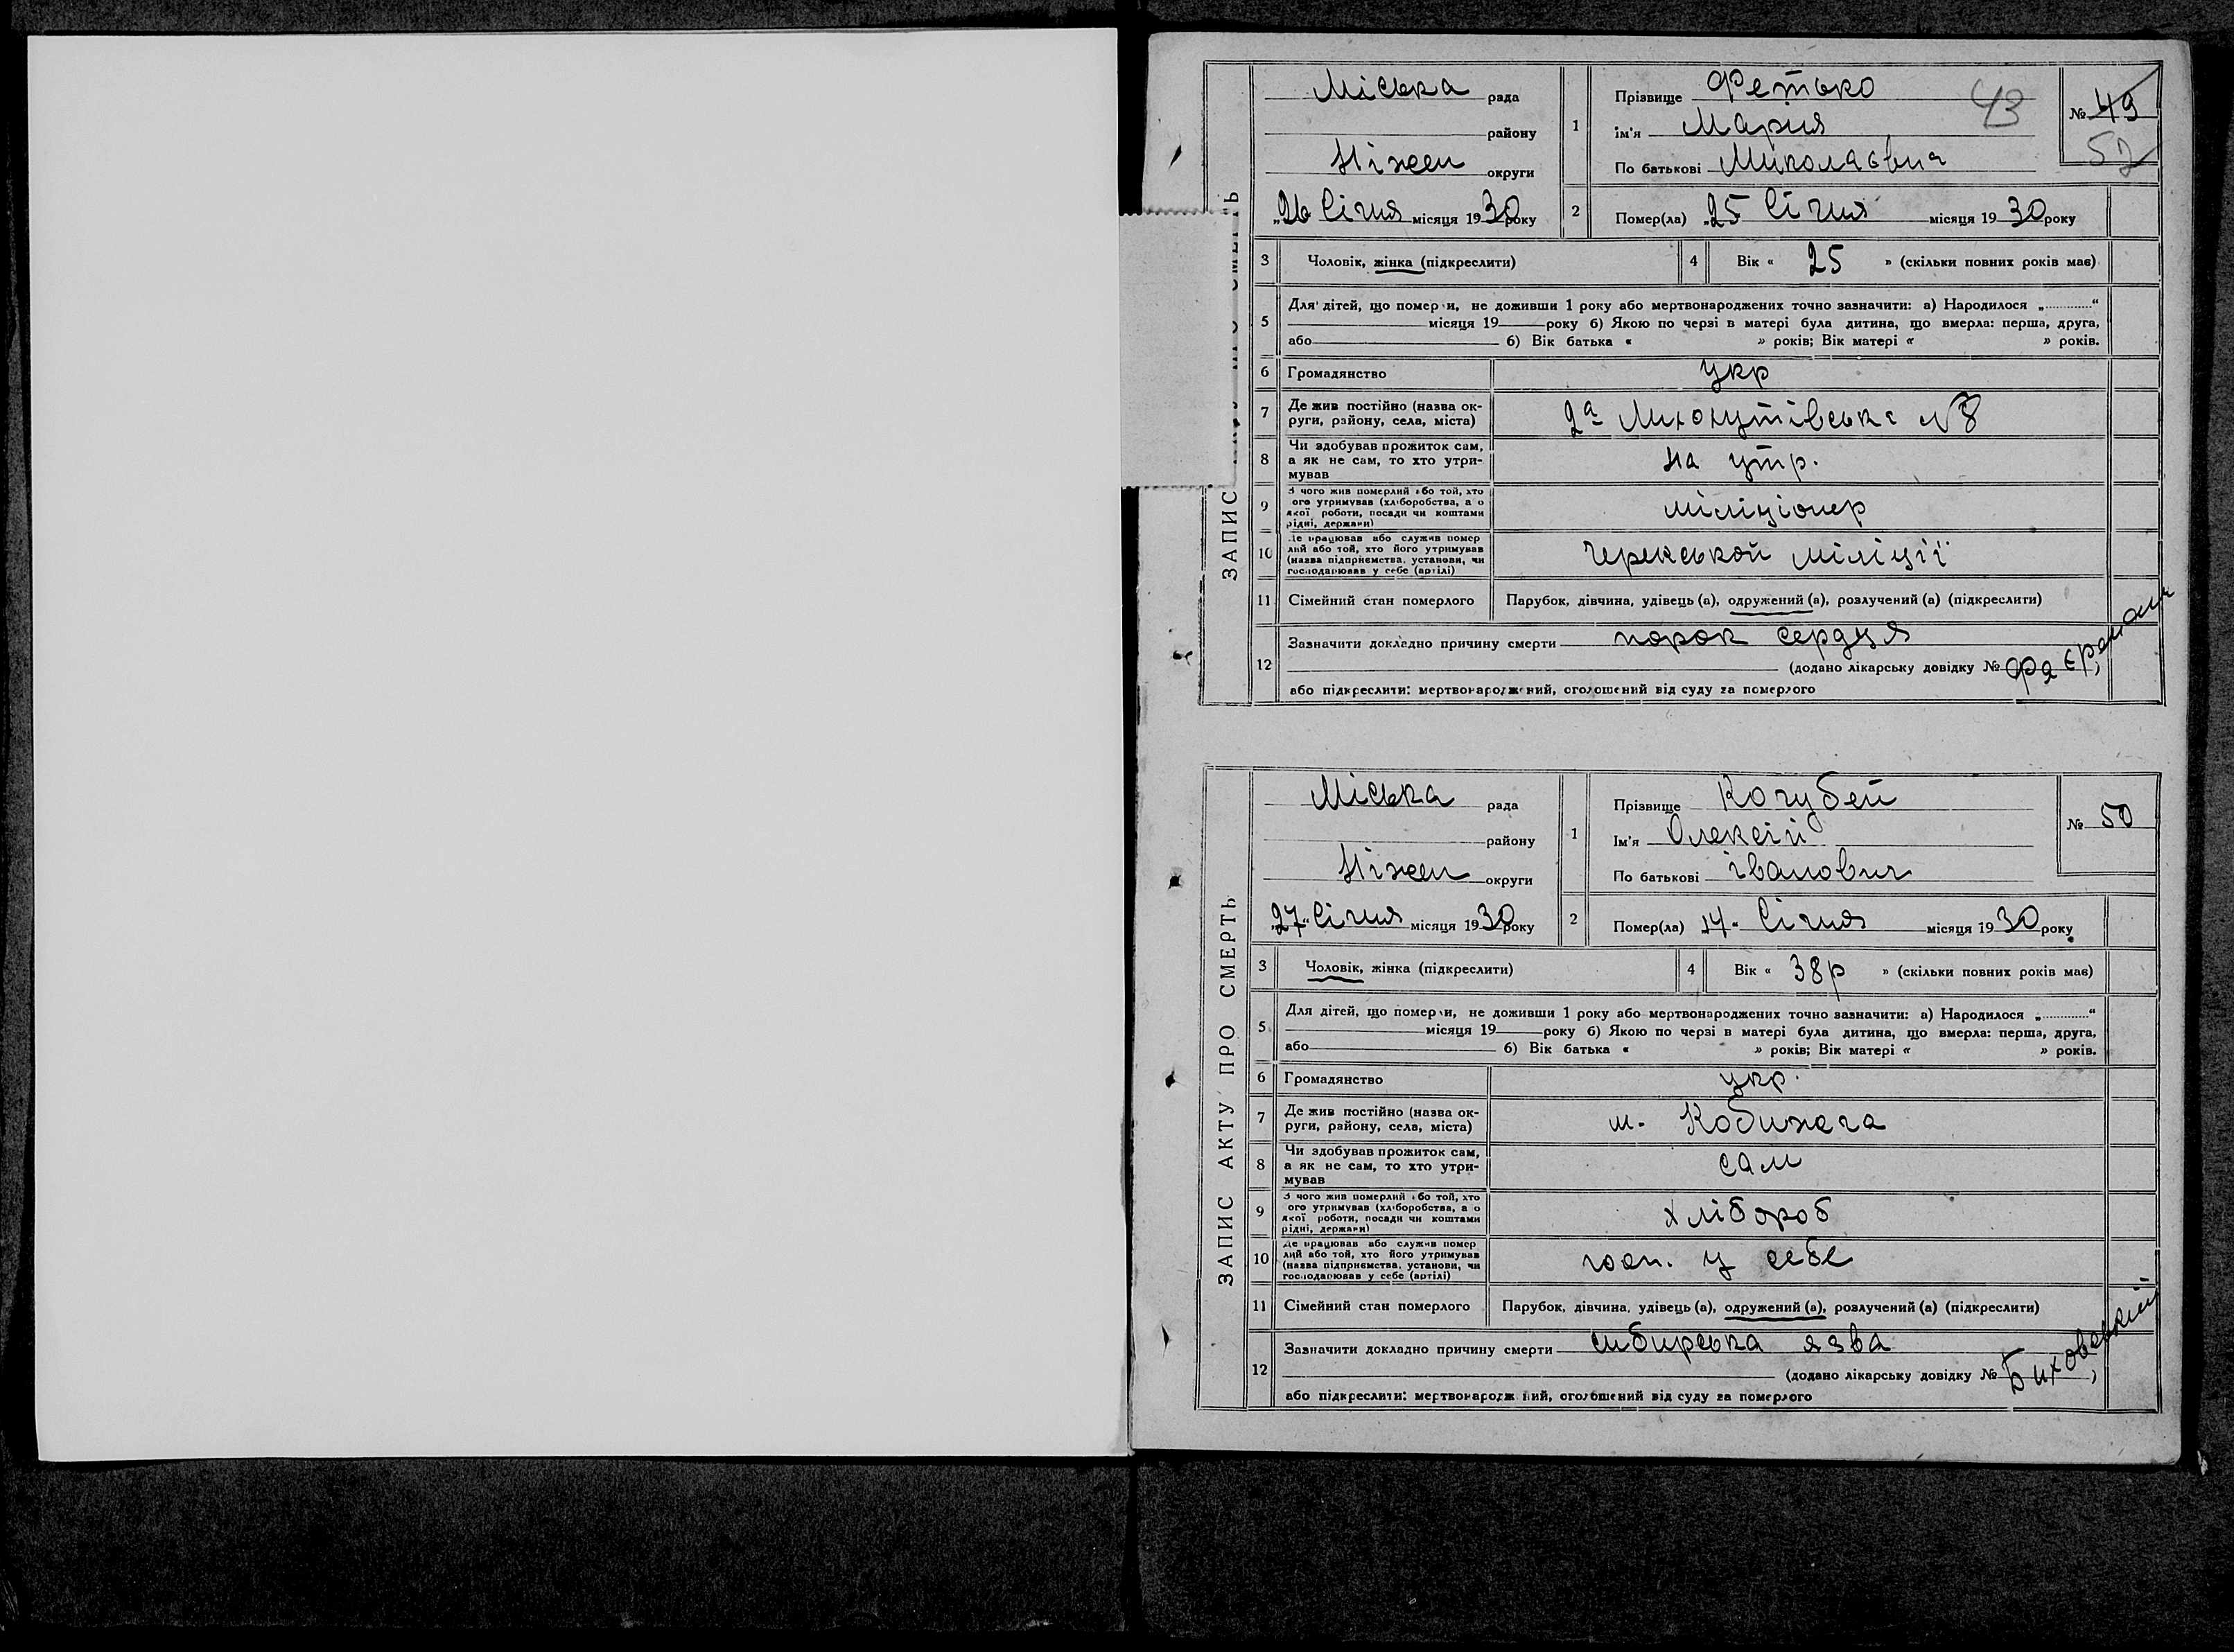 ЗАПИС
Міська рада
району
Ніжен округи
„26 Січня місяця 1930 року
1
Прізвище Фетько
ім'я Мария
По батькові Миколаєвна
43
№ 49
52
2
Помер(ла) „25 Січня місяця 1930 року
3 Чоловік, жінка (підкреслити)
4 Вік « 25 » (скільки повних років має)
5
Для дітей, що помер и, не доживши 1 року або мертвонароджених точно зазначити: а) Народилося „............“
місяця 19 року б) Якою по черзі в матері була дитина, що вмерла: перша, друга,
або б) Вік батька « » років; Вік матері « » років.
6 Громадянство укр
7 Де жив постійно (назва ок-
руги, району, села, міста)
2а №8
8 Чи здобував прожиток сам,
а як не сам, то хто утри-
мував
на утр.
9 З чого жив померлий або той, хто
ого утримував (хліборобства, а о
якої роботи, посади чи коштами
рідні, держави)
міліціонер
10 Де працював або служив помер
лий або той, хто його утримував
(назва підприємства, установи, чи
господарював у себе (артілі)
міліції
11 Сімейний стан померлого Парубок, дівчина, удівець (а), одружений (а), розлучений (а) (підкреслити)
12
Зазначити докладно причину смерти порок сердця
(додано лікарську довідку №
або підкреслити: мертвонароджений, оголошений від суду за померлого
ЗАПИС АКТУ ПРО СМЕРТЬ
Міська рада
району
Ніжен округи
„27“ Січня місяця 1930 року
1
Прізвище Кочубей
Ім'я Олексій
По батькові іванович
№ 50
2
Помер(ла) „17“ Січня місяця 1930 року
3 Чоловік, жінка (підкреслити)
4 Вік « 38р » (скільки повних років має)
5
Для дітей, що помер и, не доживши 1 року або мертвонароджених точно зазначити: а) Народилося „............“
місяця 19 року б) Якою по черзі в матері була дитина, що вмерла: перша, друга,
або б) Вік батька « » років; Вік матері « » років.
6 Громадянство укр.
7 Де жив постійно (назва ок-
руги, району, села, міста)
м. Кобижча
8 Чи здобував прожиток сам,
а як не сам, то хто утри-
мував
сам
9 З чого жив померлий або той, хто
ого утримував (хліборобства, а о
якої роботи, посади чи коштами
рідні, держави)
хлібороб
10 Де працював або служив помер
лий або той, хто його утримував
(назва підприємства, установи, чи
господарював у себе (артілі)
госп. у себе
11 Сімейний стан померлого Парубок, дівчина, удівець (а), одружений (а), розлучений (а) (підкреслити)
12
Зазначити докладно причину смерти сибирська язва
(додано лікарську довідку № Биховський)
або підкреслити: мертвонароджений, оголошений від суду за померлого